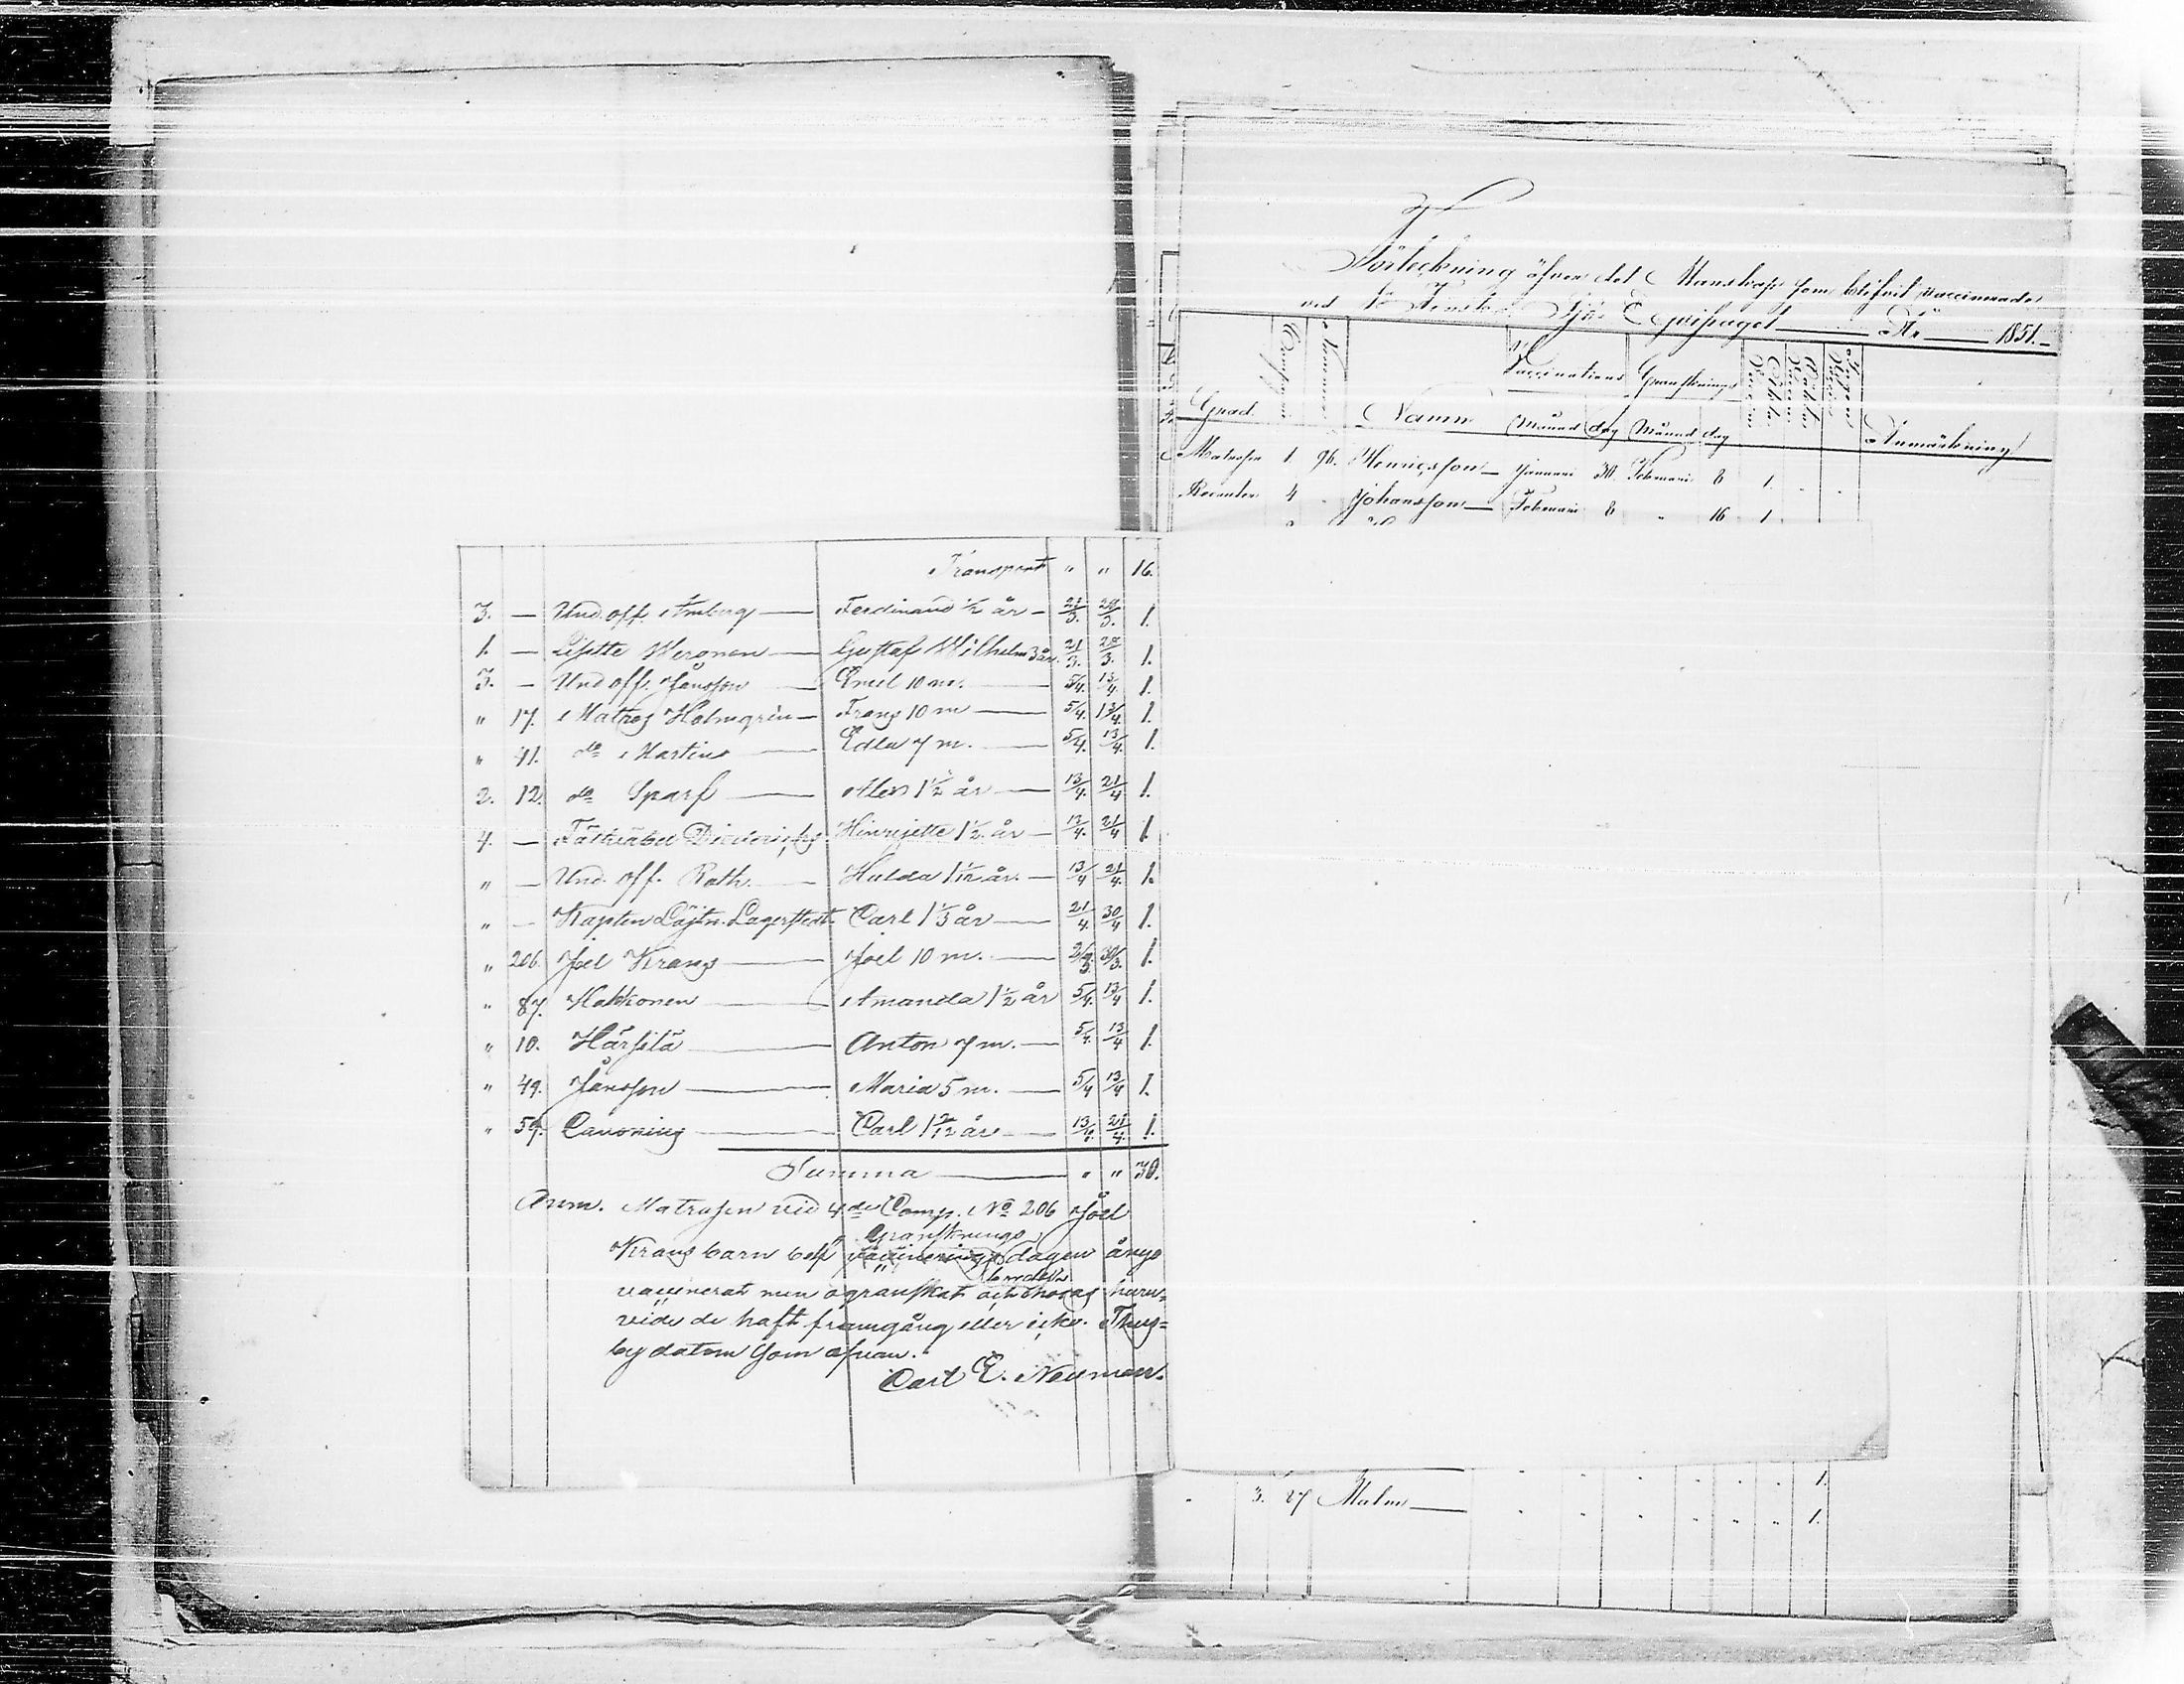 Transport " " 16.
3. — Und. off. Amberg — Ferdinand ½ år — 21/3. 28/3. 1.
1. — Lisette Weronen — Gustaf Wilhelm 3 år. 21/3. 28/3. 1.
3. — Und off. Jansson — Emil 10 m. — 5/4. 13/4. 1.
" 17. Matros Holmgren — Frans 10 m — 5/4. 13/4. 1.
" 41. do Martin — Edla 7 m. — 5/4. 13/4. 1.
2. 12. do Sparf — Alex 1½ år — 13/4. 21/4 1.
4. — Diedrichs Henriette 1½ år — 13/4. 21/4 1.
" — Und. off. Roth. — Hulda 1 1/12 år. — 13/4 21/4. 1.
" — Kapten Löjtn. Lagerstedt. Carl 1⅓ år — 21/4. 30/4 1.
" 206. Joel Krans — Joel 10 m. — 30/3. 1.
" 87. Hakkonen — Amanda 1½ år 5/4. 13/4 1.
" 10. Härsilä — Anton 7 m. — 5/4. 13/4 1.
" 49. Jansson — Maria 5 m. — 5/4 13/4 1.
" 59. Canoning — Carl 1 2/12 år — 21/4. 1.
Summa — " " 30.
Anm. Matrosen vid 4de Comp. No 206 Joel
Gransknings
Krans barn blef dagen ånyo
vaccinerat men ogranskat huru=
vida de haft framgång eller icke. Thus=
by datum som ofvan.
Carl E. Neuman.
Förteckning öfver det Manskap som blifvit vaccinerade
ved Sjö Equipaget — År — 1851. —
Grad. Compagnie Nummer Namn Vaccinations Månad dag Gransknings Månad dag Anmärkning
Matrosen 1. 96. Henricsson — Januari 30. Februari 8 1. . .
4 . Johansson — Februari 8 " 16 1.
1.
" 3. 27 Malm — " " " " " " 1.